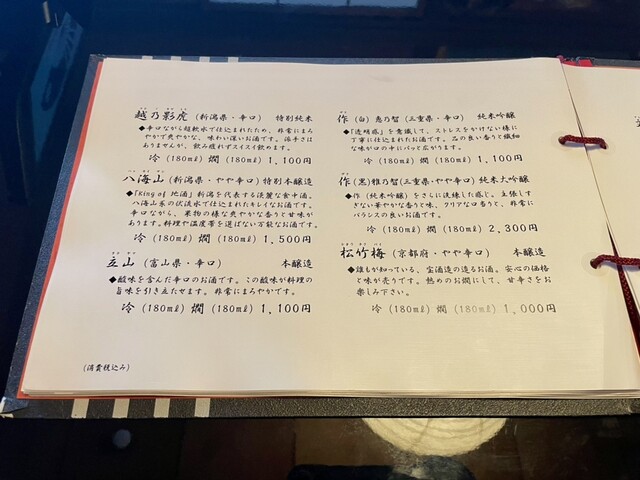 越乃影虎 (新潟県・辛口) 特別純米
◆辛口ながら超軟水で仕込まれたため、非常にまろ
やかで爽やかな、味わい深いお酒です。派手さは
ありませんが、飲み疲れずスイスイ飲めます。
冷 (180mℓ) 燗 (180mℓ) 1,100円
八海山 (新潟県・やや辛口) 特別本醸造
◆「King of 地酒」新潟を代表する淡麗な食中酒。
八海山系の伏流水で仕込まれたキレイなお酒です。
辛口ながら、果物の様な爽やかな香りと甘味が
あります。料理や温度帯を選ばない万能なお酒です。
冷 (180mℓ) 燗 (180mℓ) 1,500円
立山 (富山県・辛口) 本醸造
◆酸味を含んだ辛口のお酒です。この酸味が料理の
旨味を引き立たせます。非常にまろやかです。
冷 (180mℓ) 燗 (180mℓ) 1,100円
(消費税込み)
作 (白) 恵乃智 (三重県・辛口) 純米吟醸
◆「透明感」を意識して、ストレスをかけない様に
丁寧に仕込まれたお酒です。品の良い香りと繊細
な味が口の中にパッと広がります。
冷 (180mℓ) 燗 (180mℓ) 1,100円
作 (黒) 雅乃智 (三重県・やや辛口) 純米大吟醸
◆作 (純米吟醸) をさらに洗練した感じ。主張しす
ぎない華やかな香りと味、クリアな口香りと、非常に
バランスの良いお酒です。
冷 (180mℓ) 燗 (180mℓ) 2,300円
松竹梅 (京都府・やや辛口) 本醸造
◆誰もが知っている、宝酒造の造るお酒。安心の価格
と味が売りです。熱めのお燗にして、甘辛さをお
楽しみ下さい。
冷 (180mℓ) 燗 (180mℓ) 1,000円